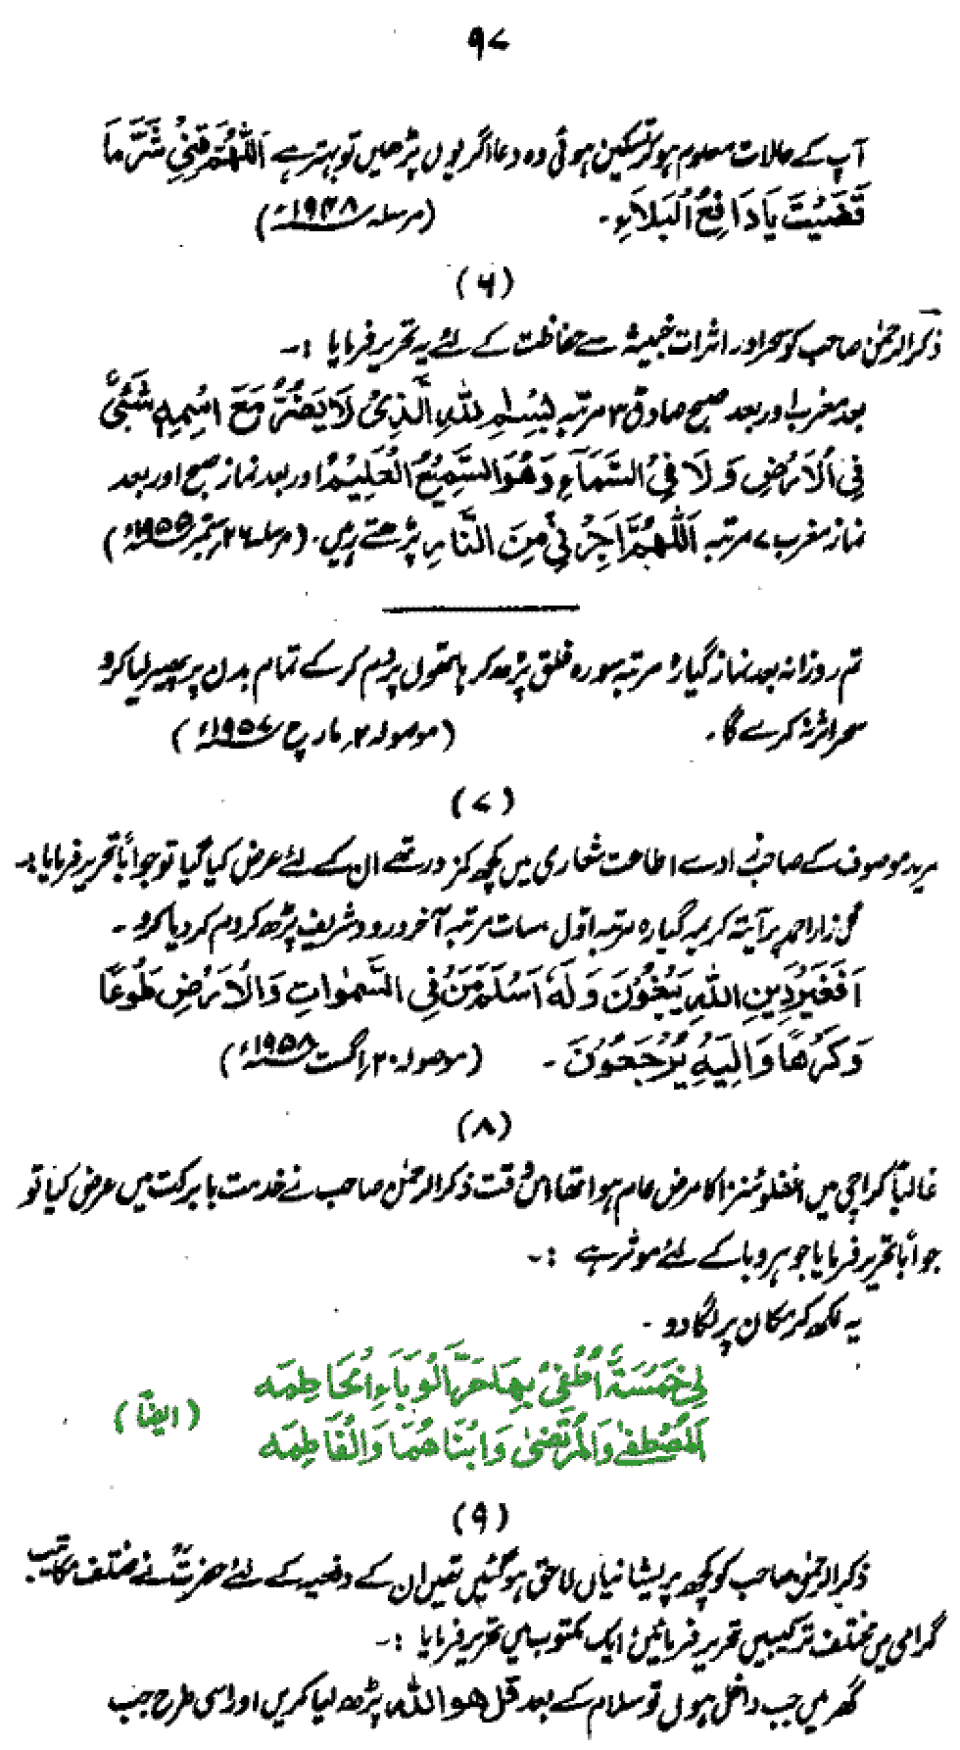 ۹۷
آپ کے حالات معلوم ہوکر تسکین ہوئی وہ دعا اگر یوں پڑھیں تو بہتر ہے اَللّٰھُمَّ قِنِیْ شَرَّ مَا
قَضَیْتَ یَا دَافِعُ الْبَلَاءِ۔ (مرسلہ ۱۹۴۸ء)
(۶)
ذکرالرحمٰن صاحب کو سحر اور اثرات خبیثہ سے حفاظت کے لئے یہ تحریر فرمایا :۔
بعد مغرب اور بعد صبح صادق ۳ مرتبہ بِسْمِ اللّٰہِ الَّذِیْ لَا یَضُرُّ مَعَ اسْمِہٖ شَیْئٌ
فِی الْاَرْضِ وَلَا فِی السَّمَآءِ وَھُوَ السَّمِیْعُ الْعَلِیْمُ اور بعد نماز صبح اور بعد
نماز مغرب ۷ مرتبہ اَللّٰھُمَّ اَجِرْنِیْ مِنَ النَّارِ پڑھتے رہیں۔ (مرسلہ ۲۶ ستمبر ۱۹۵۵ء)
تم روزانہ بعد نماز گیارہ مرتبہ سورہ فلق پڑھ کر ہاتھوں پر دم کر کے تمام بدن پر پھیر لیا کرو
سحر اثر نہ کرے گا۔ (موصولہ ۲ مارچ ۱۹۵۷ء)
(۷)
مرید موصوف کے صاحبزادے اطاعت شعاری میں کچھ کمزور تھے ان کے لئے عرض کیا گیا تو جواباً تحریر فرمایا :۔
گلزار احمد پر آیتہ کریمہ گیارہ مرتبہ اوّل سات مرتبہ آخر درود شریف پڑھ کر دم کر دیا کرو۔
اَفَغَیْرَ دِیْنِ اللّٰہِ یَبْغُوْنَ وَلَہٗ اَسْلَمَ مَنْ فِی السَّمٰوٰاتِ وَالْاَرْضِ طَوْعًا
وَکَرْھًا وَاِلَیْہِ یُرْجَعُوْنَ ۔ (موصولہ ۲۰ اگست ۱۹۵۸ء)
(۸)
غالباً کراچی میں انفلوئنزا کا مرض عام ہوا تھا اس وقت ذکرالرحمٰن صاحب نے خدمت بابرکت میں عرض کیا تو
جواباً تحریر فرمایا جو ہر وبا کے لئے موثر ہے :۔
یہ لکھ کر مکان پر لگا دو ۔
لِیْ خَمْسَۃٌ اُطْفِیْ بِھَا حَرَّ الْوَبَاءِ الْحَاطِمَہ
اَلْمُصْطَفٰے وَالْمُرْتَضٰی وَابْنَاھُمَا وَالْفَاطِمَہ (ایضاً)
(۹)
ذکرالرحمٰن صاحب کو کچھ پریشانیاں لاحق ہو گئیں تھیں ان کے دفعیہ کے لئے حضرتؒ نے مختلف مکاتیب
گرامی میں مختلف ترکیبیں تحریر فرمائیں ایک مکتوب میں تحریر فرمایا :۔
گھر میں جب داخل ہوں تو سلام کے بعد قل ھو اللہ پڑھ لیا کریں اور اسی طرح جب